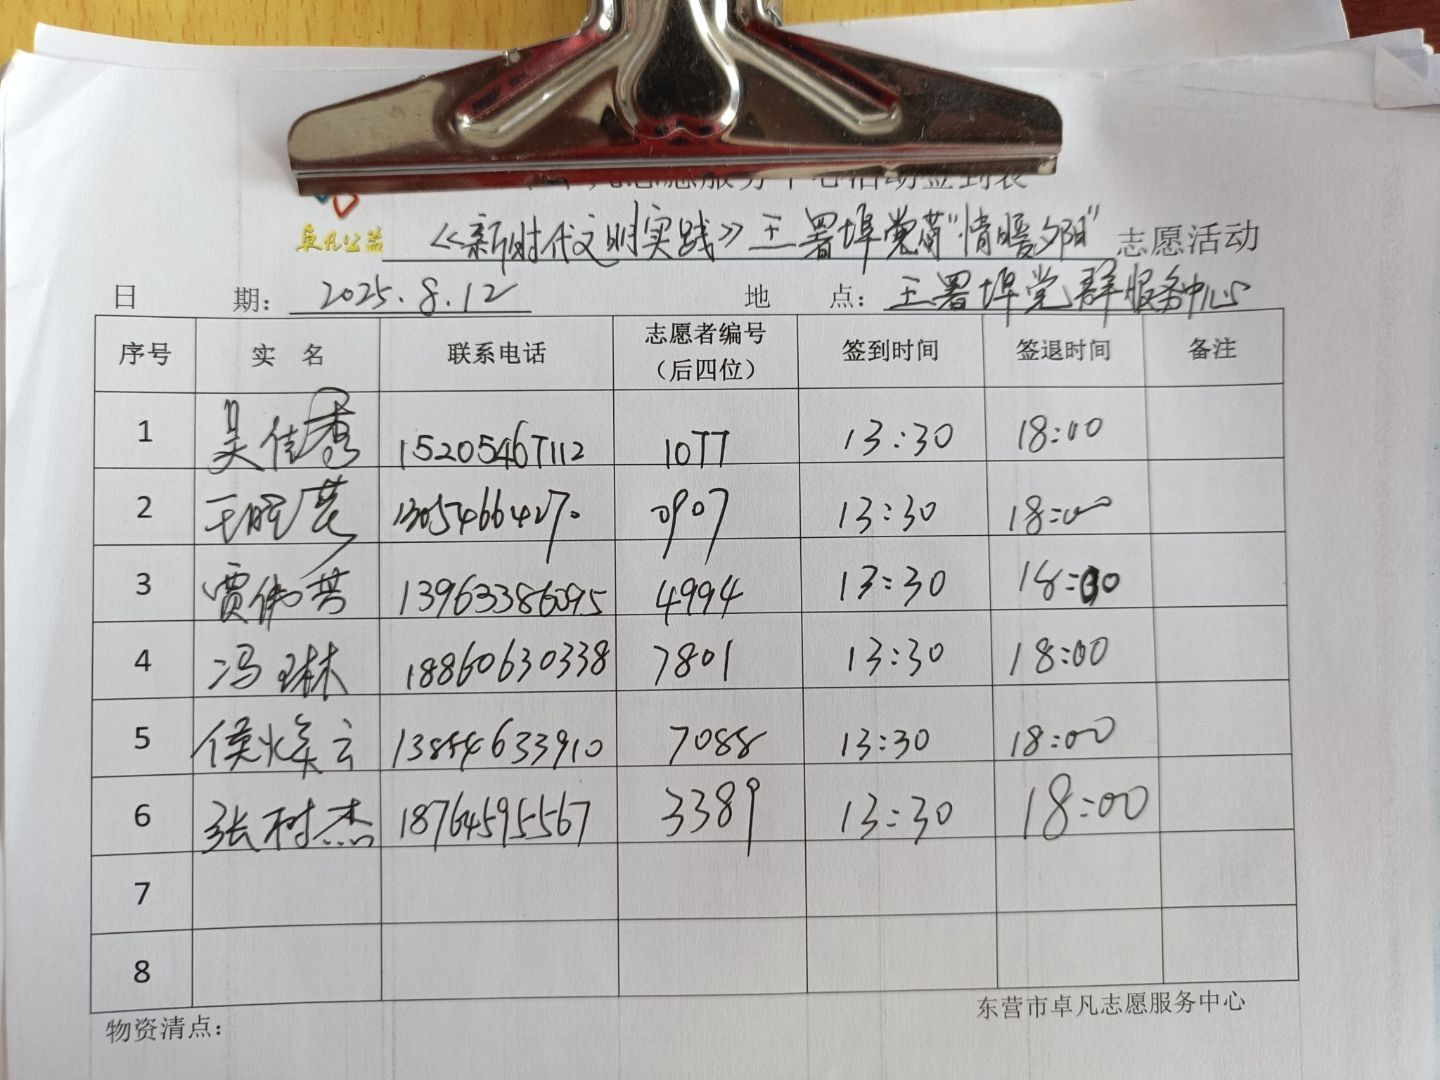 志愿服务中心活动签到表
卓凡公益 《新时代文明实践》王署埠党群"情暖夕阳" 志愿活动
日 期： 2025.8.12 地 点： 王署埠党群服务中心
序号 实 名 联系电话 志愿者编号（后四位） 签到时间 签退时间 备注
1 吴佳秀 15205467112 1077 13:30 18:00
2 13054664270 0907 13:30 18:00
3 贾伟芳 13963386095 4994 13:30 18:00
4 冯琳 18860630338 7801 13:30 18:00
5 侯焕云 13854633910 7088 13:30 18:00
6 张树杰 18764595567 3389 13:30 18:00
7
8
物资清点： 东营市卓凡志愿服务中心